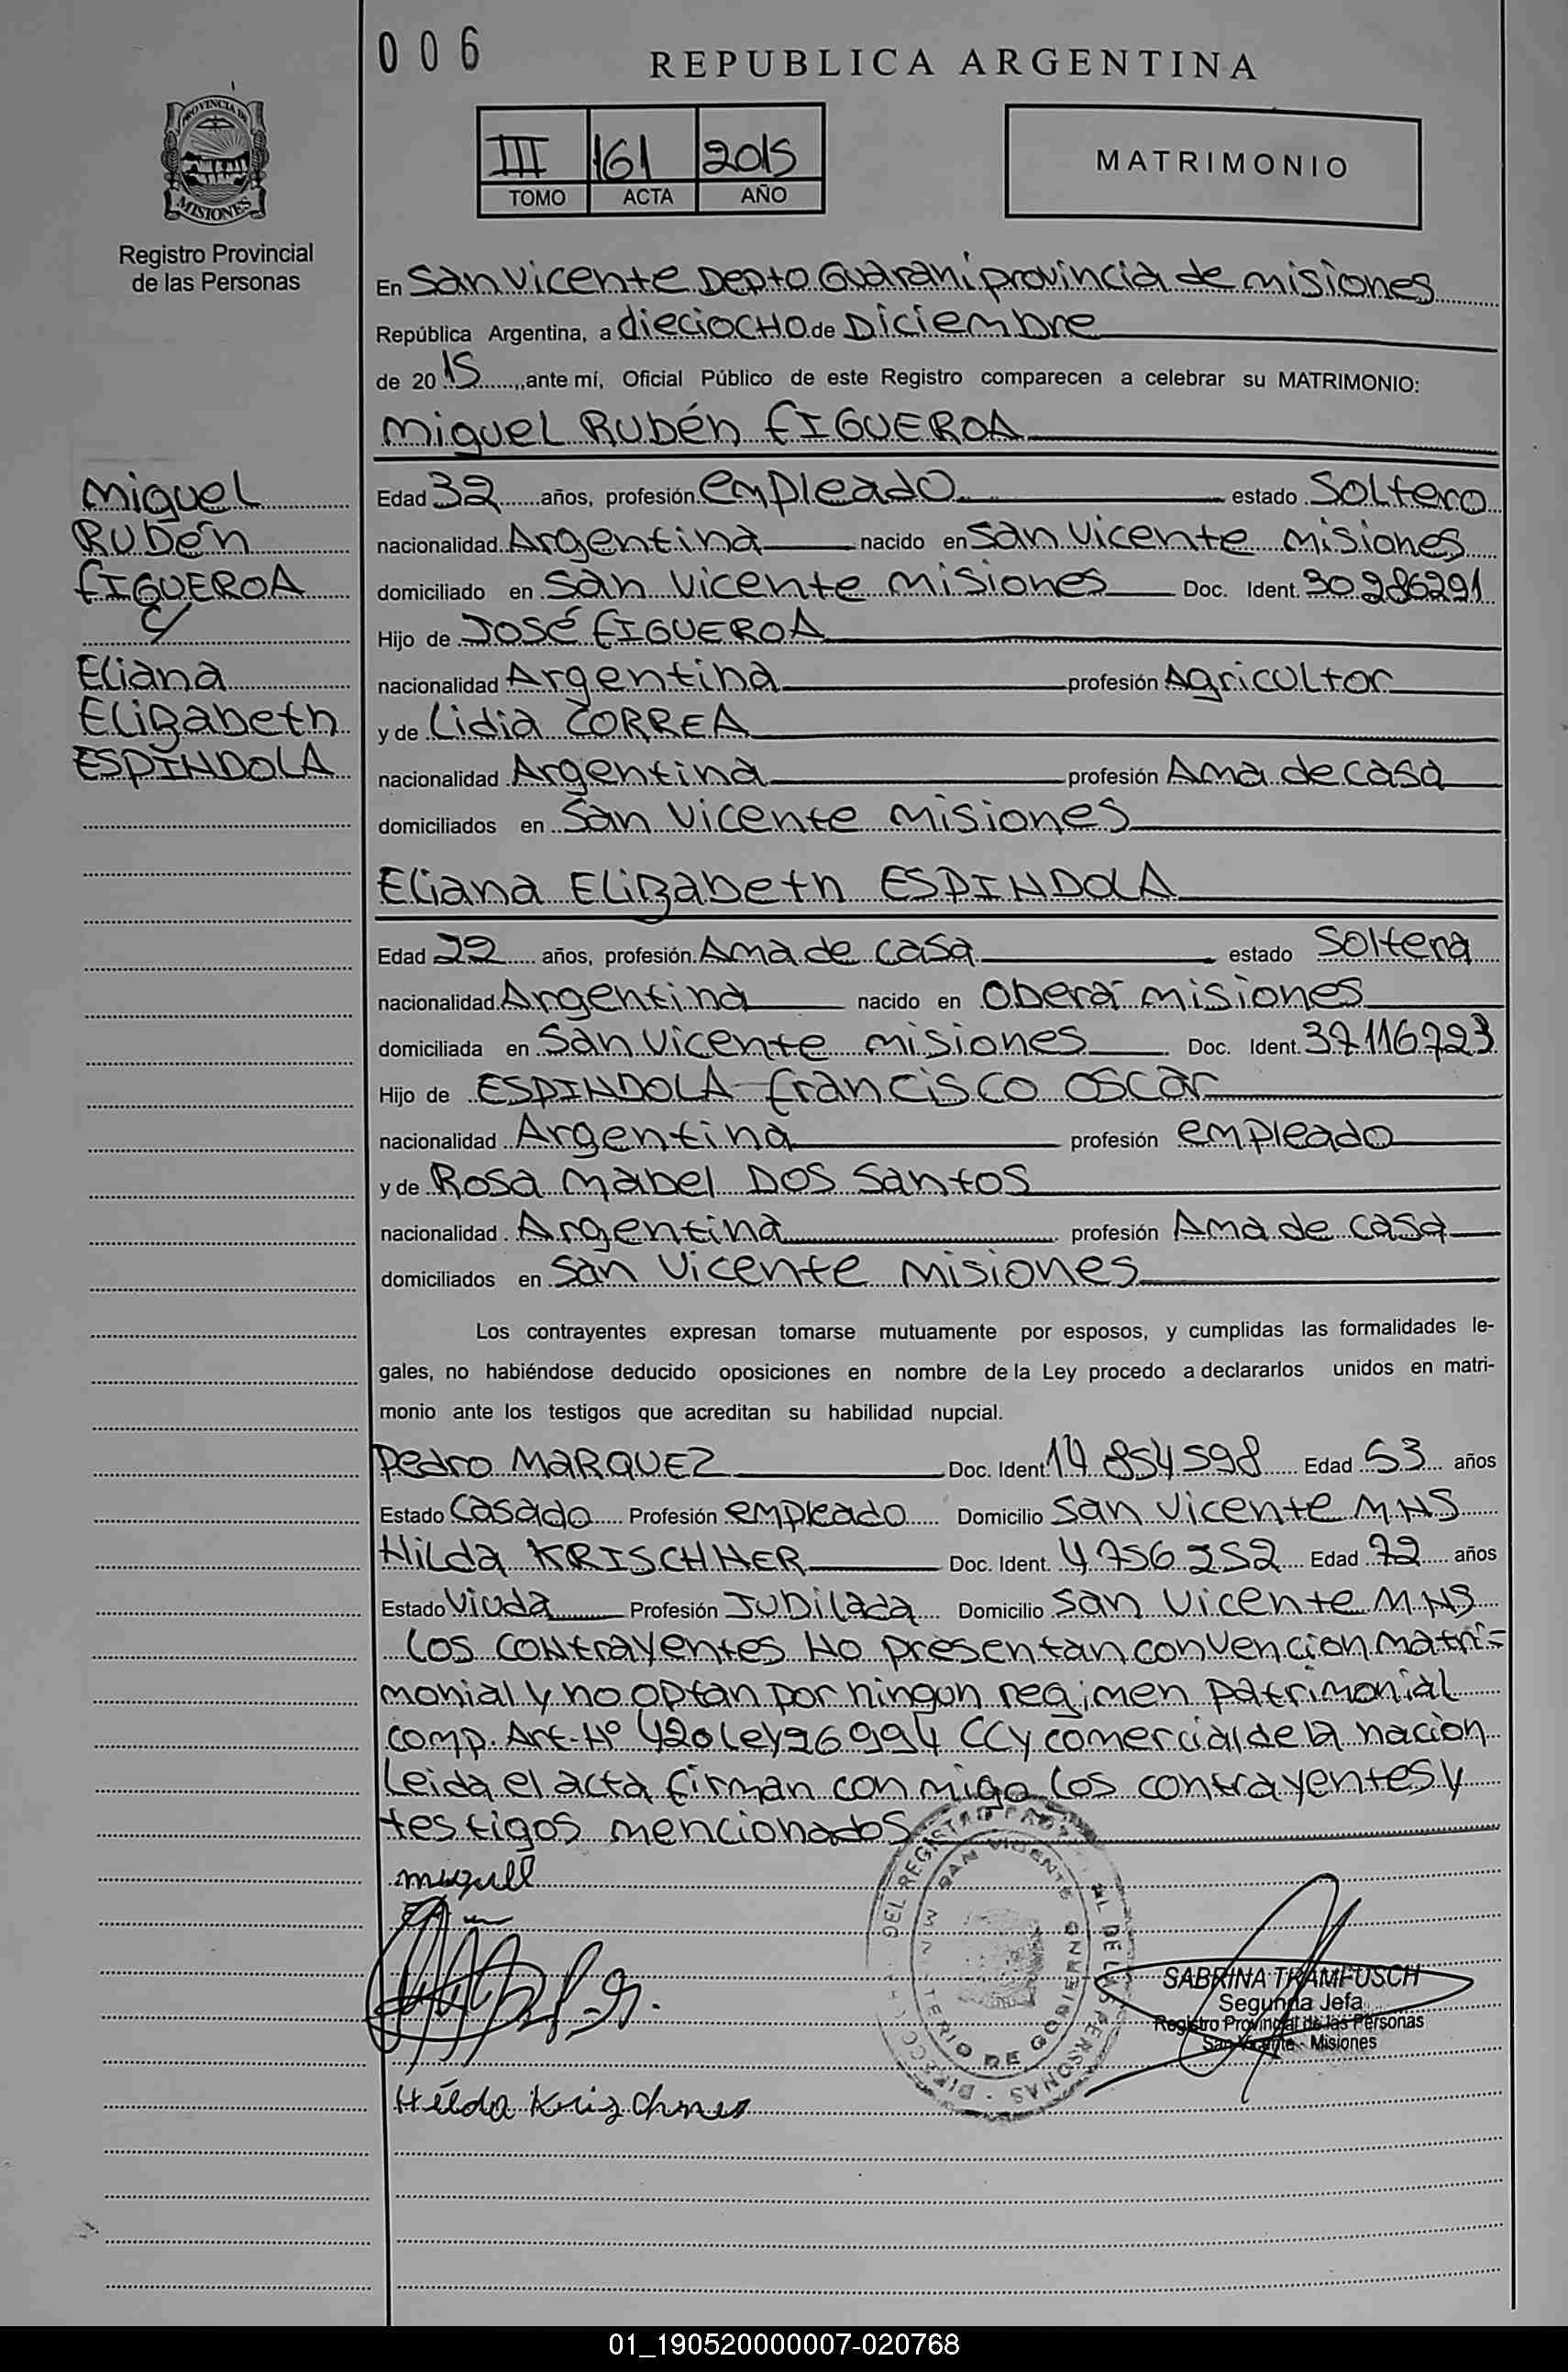 006
REPUBLICA ARGENTINA
PROVINCIA DE
MISIONES
Registro Provincial
de las Personas
III 161 2015
TOMO ACTA AÑO
MATRIMONIO
En San Vicente Depto Guaraní provincia de misiones
República Argentina, a dieciocho de Diciembre
de 2015, ante mí, Oficial Público de este Registro comparecen a celebrar su MATRIMONIO:
Miguel Rubén FIGUEROA
Miguel
Rubén
FIGUEROA
y
Eliana
Elizabeth
ESPINDOLA
Edad 32 años, profesión empleado estado Soltero
nacionalidad Argentina nacido en San Vicente Misiones
domiciliado en San Vicente Misiones Doc. Ident. 30.286291
Hijo de José FIGUEROA
nacionalidad Argentina profesión Agricultor
y de Lidia CORREA
nacionalidad Argentina profesión Ama de casa
domiciliados en San Vicente Misiones
Eliana Elizabeth ESPINDOLA
Edad 22 años, profesión Ama de casa estado Soltera
nacionalidad Argentina nacido en Oberá misiones
domiciliada en San Vicente misiones Doc. Ident. 37116723
Hijo de ESPINDOLA francisco oscar
nacionalidad Argentina profesión empleado
y de Rosa Mabel DOS Santos
nacionalidad Argentina profesión Ama de casa
domiciliados en San Vicente Misiones
Los contrayentes expresan tomarse mutuamente por esposos, y cumplidas las formalidades le-
gales, no habiéndose deducido oposiciones en nombre de la Ley procedo a declararlos unidos en matri-
monio ante los testigos que acreditan su habilidad nupcial.
Pedro MARQUEZ Doc. Ident. 14 854598 Edad 53 años
Estado Casado Profesión empleado Domicilio San Vicente MNS
Hilda KRISCHNER Doc. Ident. 4.756.252 Edad 72 años
Estado Viuda Profesión Jubilada Domicilio San Vicente MNS
Los contrayentes no presentan convencion matri=
monial y no optan por ningun regimen patrimonial
comp. Art. Nº 420 Ley 26994 CC y comercial de la nacion
Leida el acta firman con migo los contrayentes y
testigos mencionados
miguel
DEL REGISTRO DE LAS PERSONAS
SAN VICENTE
MINISTERIO DE GOBIERNO
SABRINA TRAMFUSCH
Segunda Jefa
Registro Provincial de las Personas
San Vicente - Misiones
Hilda Krischner
01_190520000007-020768